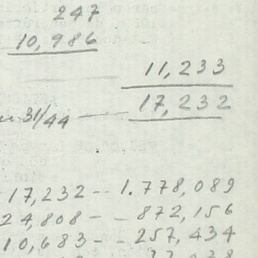 247
10,986
11,233
17,232
31/44 —
17,232 -- 1.778,089
24,808 -- 872,156
10,683 -- 257,434